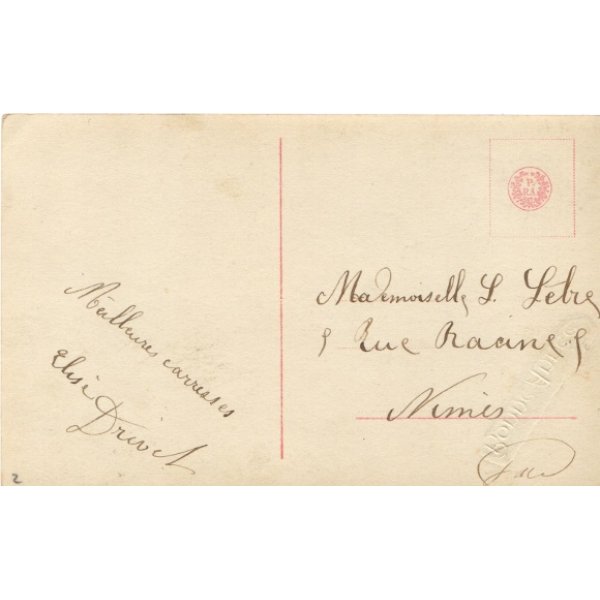 Meillures carresses
Elise
Drivet
P.
R.A.
Mademoiselle S. Lebre
5 Rue Racine 5
Nimes
2